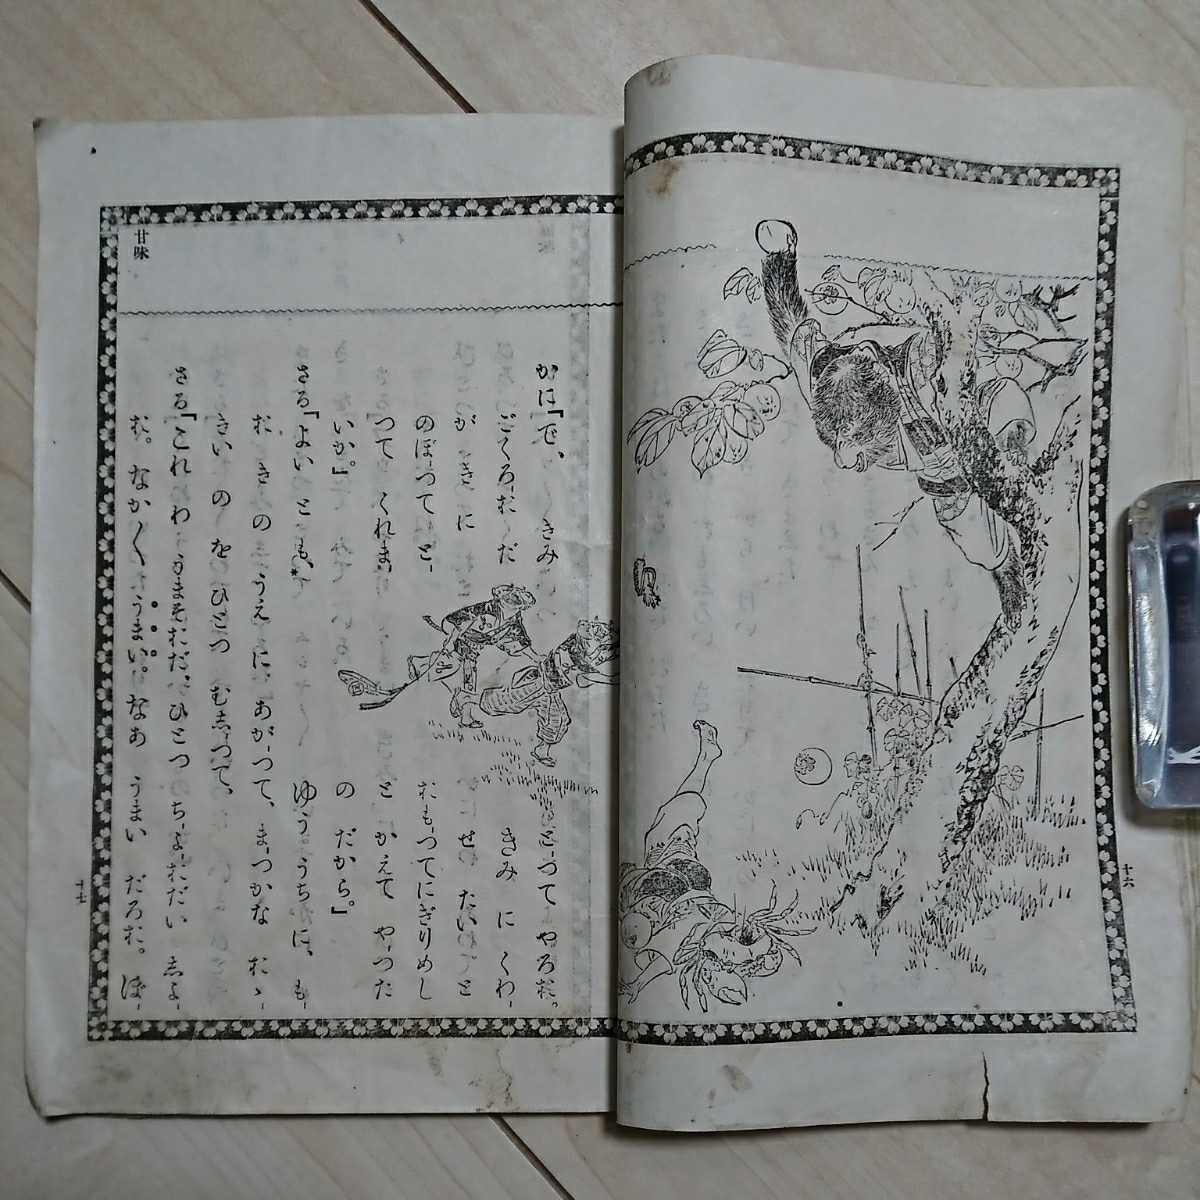 十六
甘味
かに「で、 きみ
ごくろおだ
が きに
のぼつて と-
つて くれま
いか。」
さる「よい とも、
とつて やろお。
きみ に くわ-
せ たい と
おもつてにぎりめし
と かえて やつた
の だから。」
ゆうーうちに、 も-
お きの うえ に あがつて、まつかな おゝ
きい の をひとつ むしつて、
さる「これわ うまそおだ。ひとつ ちよおだい しよ-
お。なか〳〵 うまい。なあ うまい だろお。 ぼ-
十七